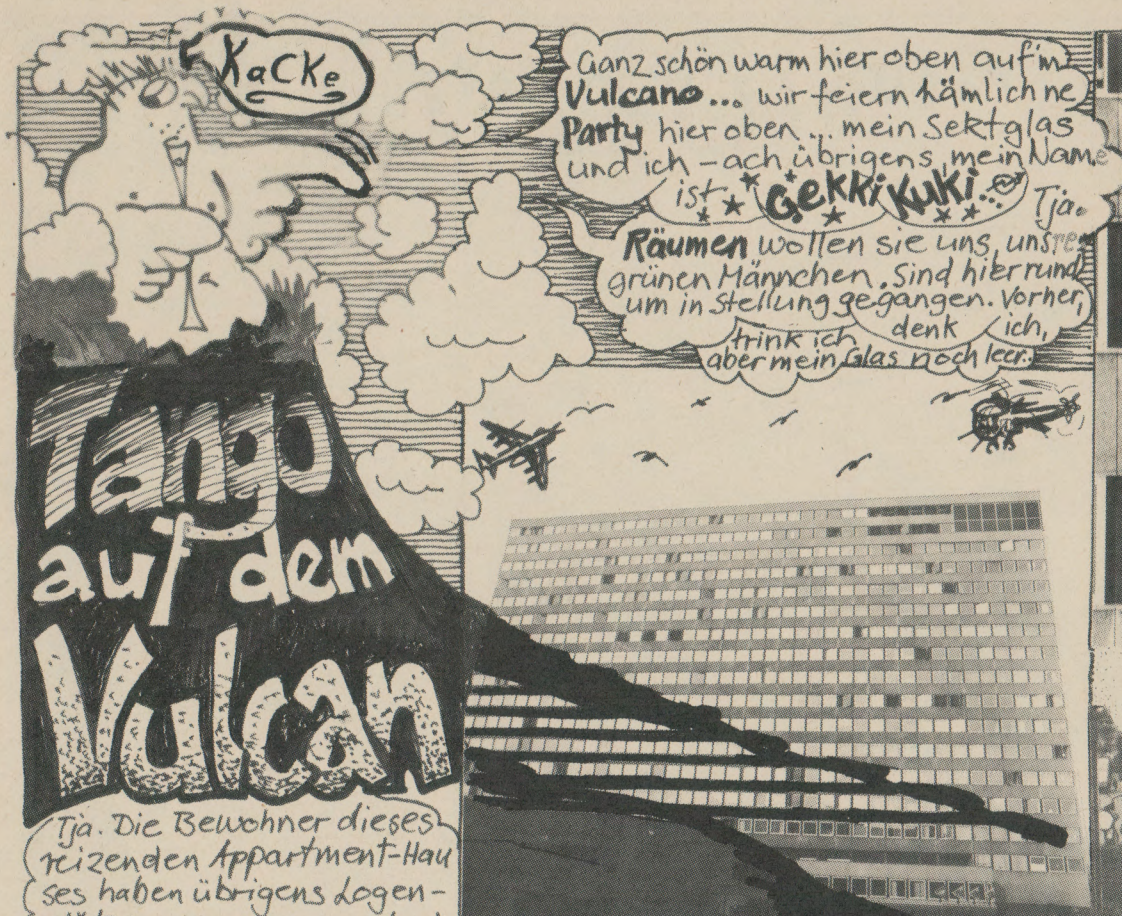 KaCKe
Ganz schön warm hier oben auf'm
Vulcano... wir feiern nämlich ne
Party hier oben... mein Sektglas
und ich – ach übrigens, mein Name
ist GEKKI KUKI...
Tja.
Räumen wollen sie uns, unsre
grünen Männchen. Sind hier rund
um in Stellung gegangen. Vorher,
denk ich,
trink ich
aber mein Glas noch leer..
Tango
auf dem
Vulcan
Tja. Die Bewohner dieses
reizenden Appartment-Hau
ses haben übrigens Logen-